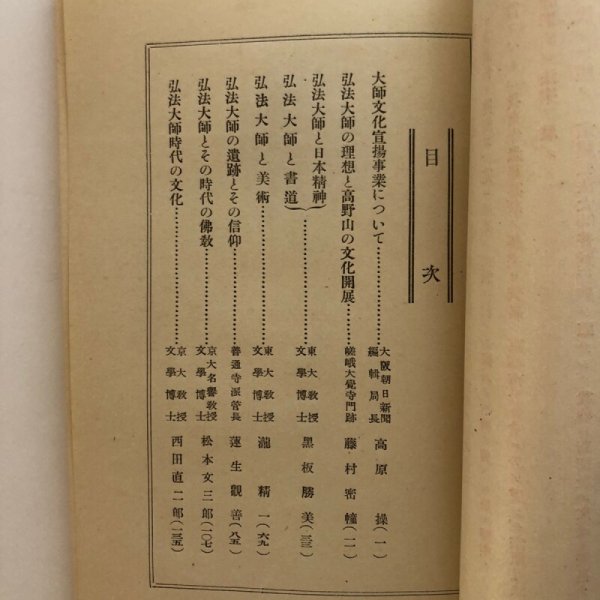 目次
大師文化宣揚事業について………大阪朝日新聞編輯局長 高原操(一)
弘法大師の理想と高野山の文化開展…嵯峨大覺寺門跡 藤村密幢(二一)
弘法大師と日本精神
弘法大師と書道………東大教授文學博士 黑板勝美(三三)
弘法大師と美術………東大教授文學博士 瀧精一(六九)
弘法大師の遺跡とその信仰………善通寺派管長 蓮生觀善(八五)
弘法大師とその時代の佛教………京大名譽教授文學博士 松本文三郎(一〇七)
弘法大師時代の文化………京大教授文學博士 西田直二郎(一三五)